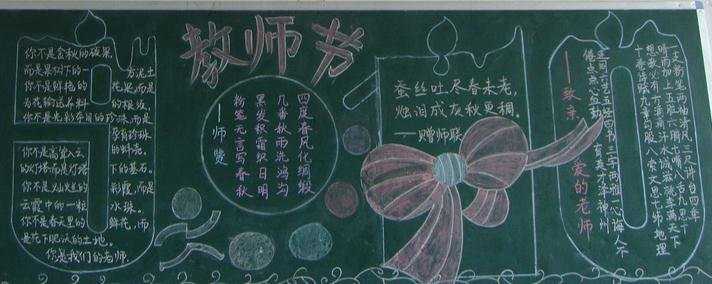 教师节
你不是金秋的硕果,
而是果树下的一方泥土
你不是鲜艳的花朵,而是
为花输送养料的根须,
你不是光彩夺目的珍珠,而是
孕育珍珠
的蚌壳。
你不是高耸入云
的灯塔而是灯塔下的基石。
你不是灿烂的彩霞,而是
云霞中的一粒水珠。
你不是春天里的鲜花,而
是花下肥沃的土地。
你是我们的老师.
——师赞
四度春风化绸缎
几番秋雨洗鸿沟
黑发积霜织日月
粉笔无言写春秋
蚕丝吐尽春未老,
烛泪成灰秋更稠.
——赠师联
——致亲爱的老师
一支粉笔两袖清风,三尺讲台四季
晴雨加上五脏六腑七嘴八舌九思十
想教必有方滴滴汗水诚滋桃李满天下
十卷诗赋九章勾股八索文思七纬地理
连同六艺五经四书三字两雅一心诲人不
倦点点心血勤育英才泽神州